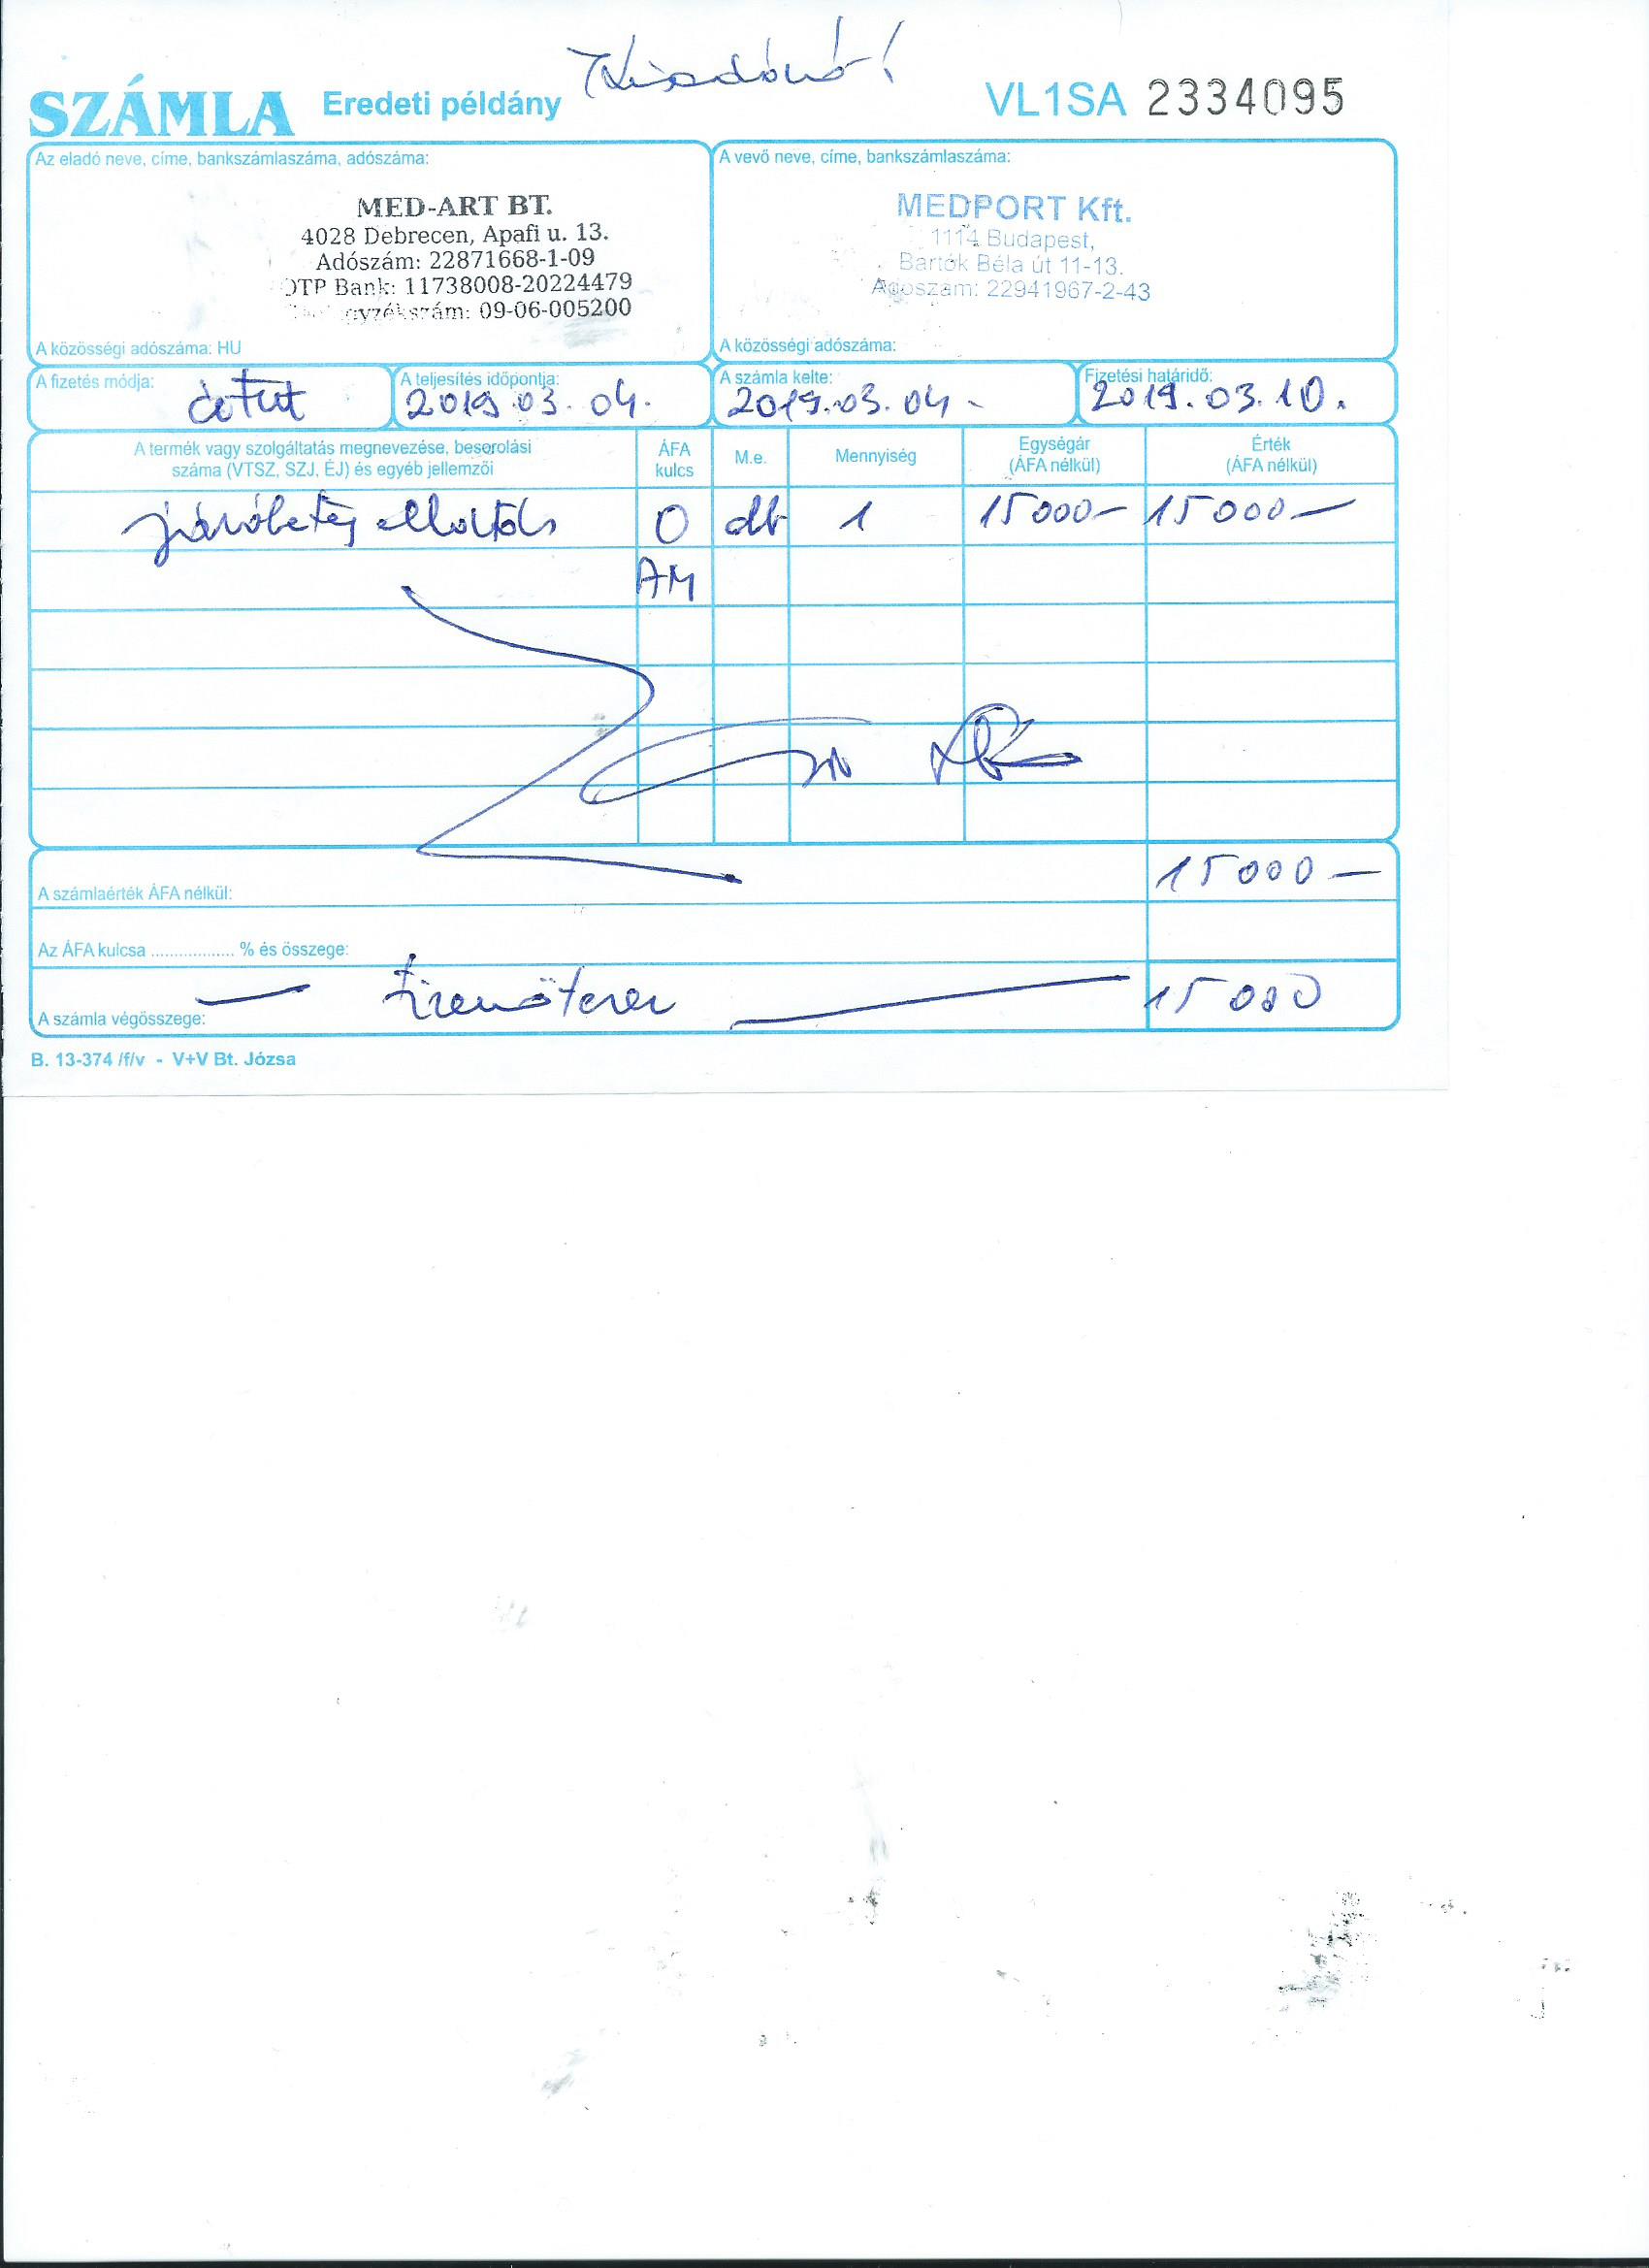 Kiadó!
SZÁMLA Eredeti példány VL1SA 2334095
Az eladó neve, címe, bankszámlaszáma, adószáma:
MED-ART BT.
4028 Debrecen, Apafi u. 13.
Adószám: 22871668-1-09
OTP Bank: 11738008-20224479
gyzékszám: 09-06-005200
A közösségi adószáma: HU
A vevő neve, címe, bankszámlaszáma:
MEDPORT Kft.
1114 Budapest,
Bartók Béla út 11-13.
Adószám: 22941967-2-43
A közösségi adószáma:
A fizetés módja: átut
A teljesítés időpontja: 2019.03.04.
A számla kelte: 2019.03.04.
Fizetési határidő: 2019.03.10.
A termék vagy szolgáltatás megnevezése, besorolási száma (VTSZ, SZJ, ÉJ) és egyéb jellemzői
ÁFA kulcs
M.e.
Mennyiség
Egységár (ÁFA nélkül)
Érték (ÁFA nélkül)
járóbeteg ellátás 0 db 1 15000- 15000-
AM
A számlaérték ÁFA nélkül: 15000-
Az ÁFA kulcsa ................. % és összege:
A számla végösszege: - tizenötezer - 15000
B. 13-374 /f/v - V+V Bt. Józsa